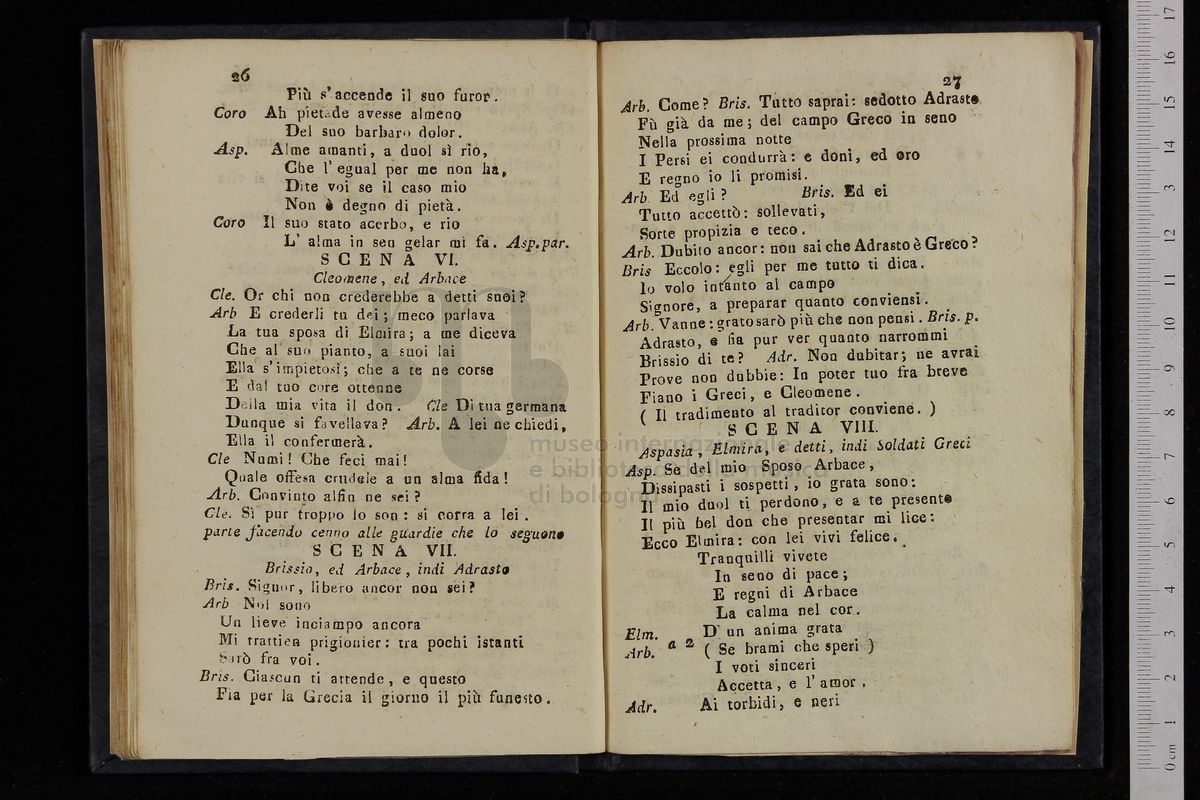 26
Più s'accende il suo furor.
Coro Ah pietade avesse almeno
Del suo barbaro dolor.
Asp. Alme amanti, a duol sì rio,
Che l'egual per me non ha,
Dite voi se il caso mio
Non è degno di pietà.
Coro Il suo stato acerbo, e rio
L'alma in sen gelar mi fa. Asp.par.
SCENA VI.
Cleomene, ed Arbace
Cle. Or chi non crederebbe a detti suoi?
Arb E crederli tu dei; meco parlava
La tua sposa di Elmira; a me diceva
Che al suo pianto, a suoi lai
Ella s'impietosì; che a te ne corse
E dal tuo core ottenne
Della mia vita il don. Cle Di tua germana
Dunque si favellava? Arb. A lei ne chiedi,
Ella il confermerà.
Cle Numi! Che feci mai!
Quale offesa crudele a un alma fida!
Arb. Convinto alfin ne sei?
Cle. Sì pur troppo lo son: si corra a lei.
parte facendo cenno alle guardie che lo seguono
SCENA VII.
Brissio, ed Arbace, indi Adrasto
Bris. Signor, libero ancor non sei?
Arb Nol sono
Un lieve inciampo ancora
Mi trattien prigionier: tra pochi istanti
Sarò fra voi.
Bris. Ciascun ti attende, e questo
Fia per la Grecia il giorno il più funesto.
27
Arb. Come? Bris. Tutto saprai: sedotto Adrasto
Fù già da me; del campo Greco in seno
Nella prossima notte
I Persi ei condurrà: e doni, ed oro
E regno io li promisi.
Arb Ed egli? Bris. Ed ei
Tutto accettò: sollevati,
Sorte propizia e teco.
Arb. Dubito ancor: non sai che Adrasto è Greco?
Bris Eccolo: egli per me tutto ti dica.
Io volo intanto al campo
Signore, a preparar quanto conviensi.
Arb. Vanne: grato sarò più che non pensi. Bris. p.
Adrasto, e fia pur ver quanto narrommi
Brissio di te? Adr. Non dubitar; ne avrai
Prove non dubbie: In poter tuo fra breve
Fiano i Greci, e Cleomene.
( Il tradimento al traditor conviene. )
SCENA VIII.
Aspasia, Elmira, e detti, indi Soldati Greci
Asp. Se del mio Sposo Arbace,
Dissipasti i sospetti, io grata sono:
Il mio duol ti perdono, e a te presento
Il più bel don che presentar mi lice:
Ecco Elmira: con lei vivi felice.
Tranquilli vivete
In seno di pace;
E regni di Arbace
La calma nel cor.
Elm. D'un anima grata
Arb. a 2 ( Se brami che speri )
I voti sinceri
Accetta, e l'amor.
Adr. Ai torbidi, e neri
museo internazionale
e biblioteca della musica
di bologna
0 cm 1 2 3 4 5 6 7 8 9 10 11 12 13 14 15 16 17